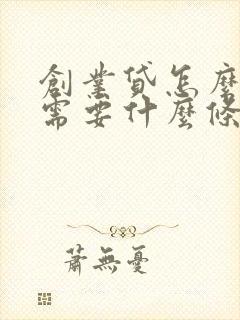 創業貸怎麼
需要什麼條
蕭無憂